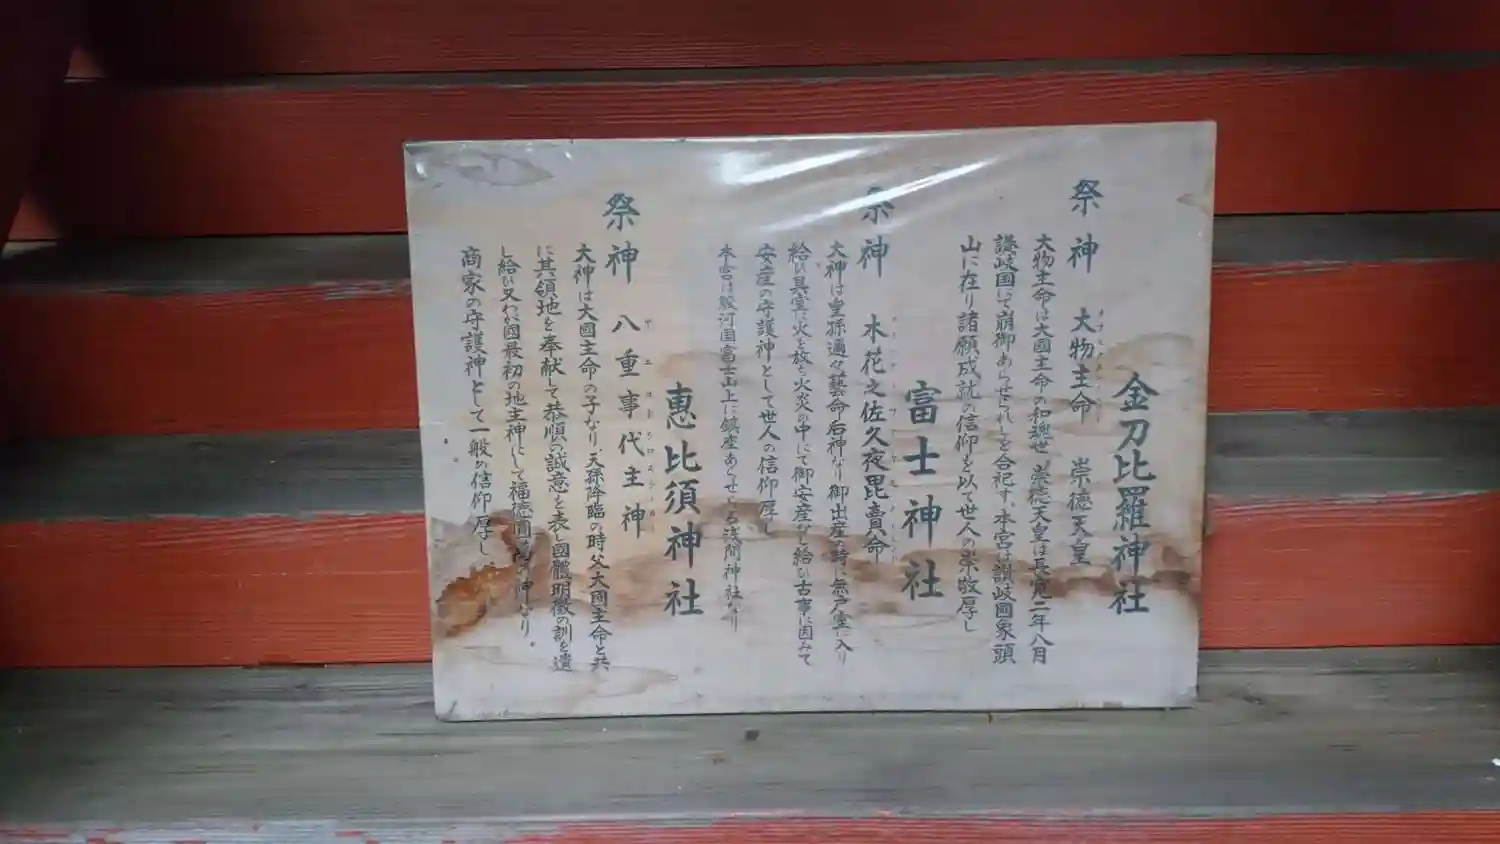 金刀比羅神社
祭神 大物主命 崇徳天皇
大物主命は大國主命の和魂世 崇徳天皇は長寛二年八月
讃岐国にて崩御あらせられしを合祀す。本宮は讃岐國象頭
山に在り諸願成就の信仰を以て世人の崇敬厚し
富士神社
祭神 木花之佐久夜毘賣命
大神は皇孫邇々藝命后神なり御出産の時に無戸室に入り
給ひ其室に火を放ち火炎の中にて御安産なし給ひ古事に因みて
安産の守護神として世人の信仰厚し
本宮は駿河国富士山上に鎮座あらせらる浅間神社なり
惠比須神社
祭神 八重事代主神
ヤエコトシロヌシノカミ
大神は大國主命の子なり、天孫降臨の時父大國主命と共
に其領地を奉献して恭順の誠意を表し國體明徴の訓を遺
し給ひ又わが國最初の地主神にして福徳圓満の神なり。
商家の守護神として一般の信仰厚し